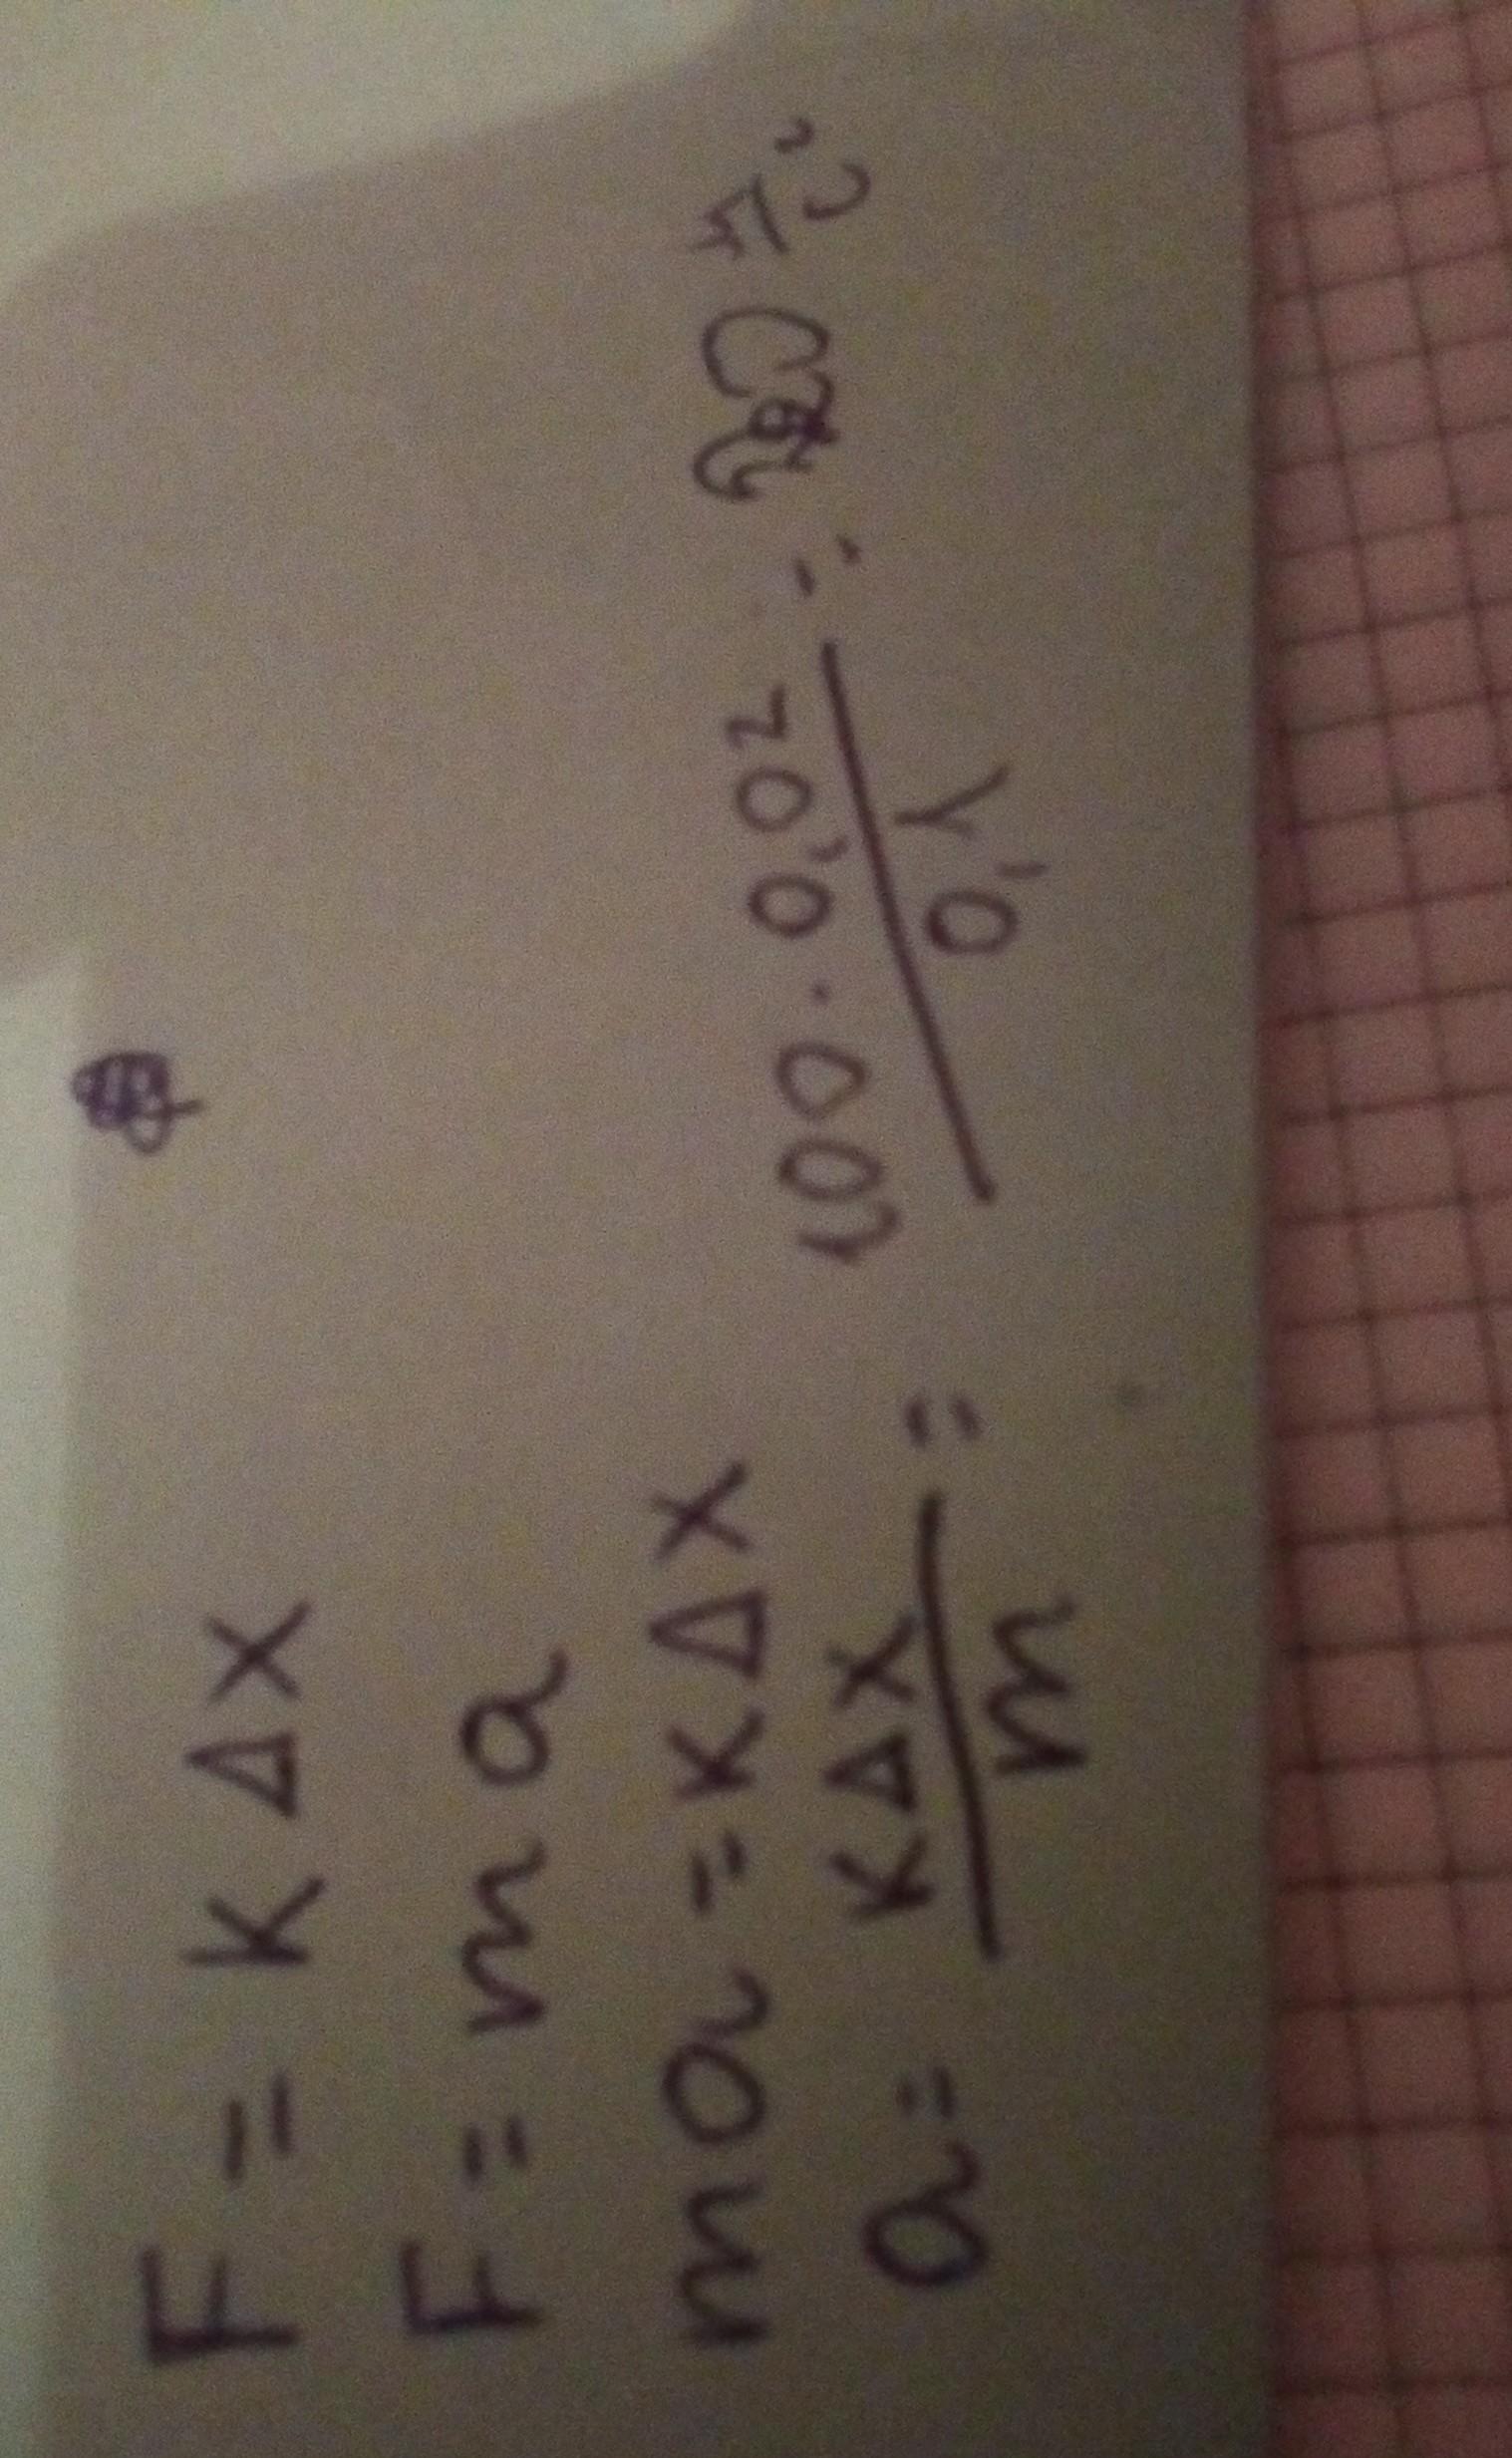 F = K Δ X
F = m a
ma = K Δ X
a = KΔX/m = 100 · 0,02/0,1 = 20 м/с²